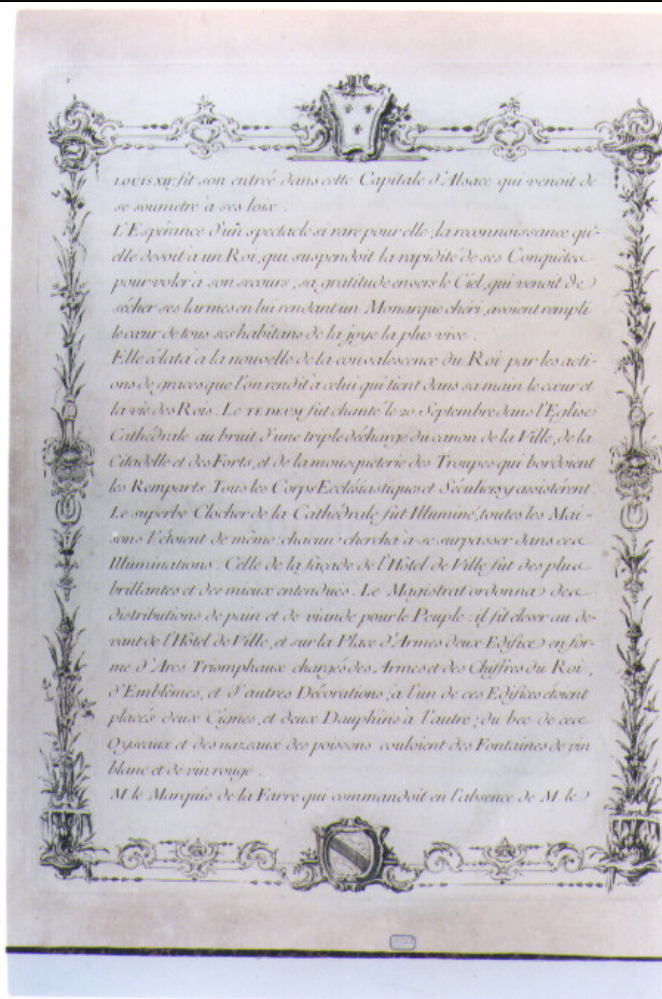 LOUIS XIV. fit son entreé dans cette Capitale d'Alsace qui venoit de
se soumetre à ses loix.
L'Espérance d'un spectacle si rare pour elle, la reconnoissance qu'-
elle devoit à un Roi, qui suspendoit la rapidité de ses Conquêtes
pour voler à son secours; sa gratitude envers le Ciel, qui venoit de
sécher ses larmes en lui rendant un Monarque chéri, avoient rempli
le cœur de tous ses habitans de la joye la plus vive.
Elle éclata à la nouvelle de la convalescence du Roi par les acti-
ons de graces que l'on rendit à celui qui tient dans sa main le cœur et
la vie des Rois. Le TE DEUM fut chanté le 20 Septembre dans l'Eglise
Cathédrale au bruit d'une triple décharge du canon de la Ville, de la
Citadelle et des Forts, et de la mousqueterie des Troupes qui bordoient
les Remparts. Tous les Corps Ecclésiastiques et Séculiers y assistérent.
Le superbe Clocher de la Cathédrale fut Illuminé, toutes les Mai-
sons l'étoient de même chacun chercha à se surpasser dans ces
Illuminations. Celle de la façade de l'Hôtel de Ville fut des plus
brillantes et des mieux entendues. Le Magistrat ordonna des
distributions de pain et de viande pour le Peuple: il fit elever au de-
vant de l'Hôtel de Ville, et sur la Place d'Armes deux Edifices en for-
me d'Arcs Triomphaux chargés des Armes et des Chiffres du Roi,
d'Emblêmes, et d'autres Décorations; a l'un de ces Edifices étoient
placés deux Cignes, et deux Dauphins à l'autre; du bec de ces
Oyseaux et des nazeaux des poissons couloient des Fontaines de vin
blanc et de vin rouge.
M. le Marquis de la Farre qui commandoit en l'absence de M. le